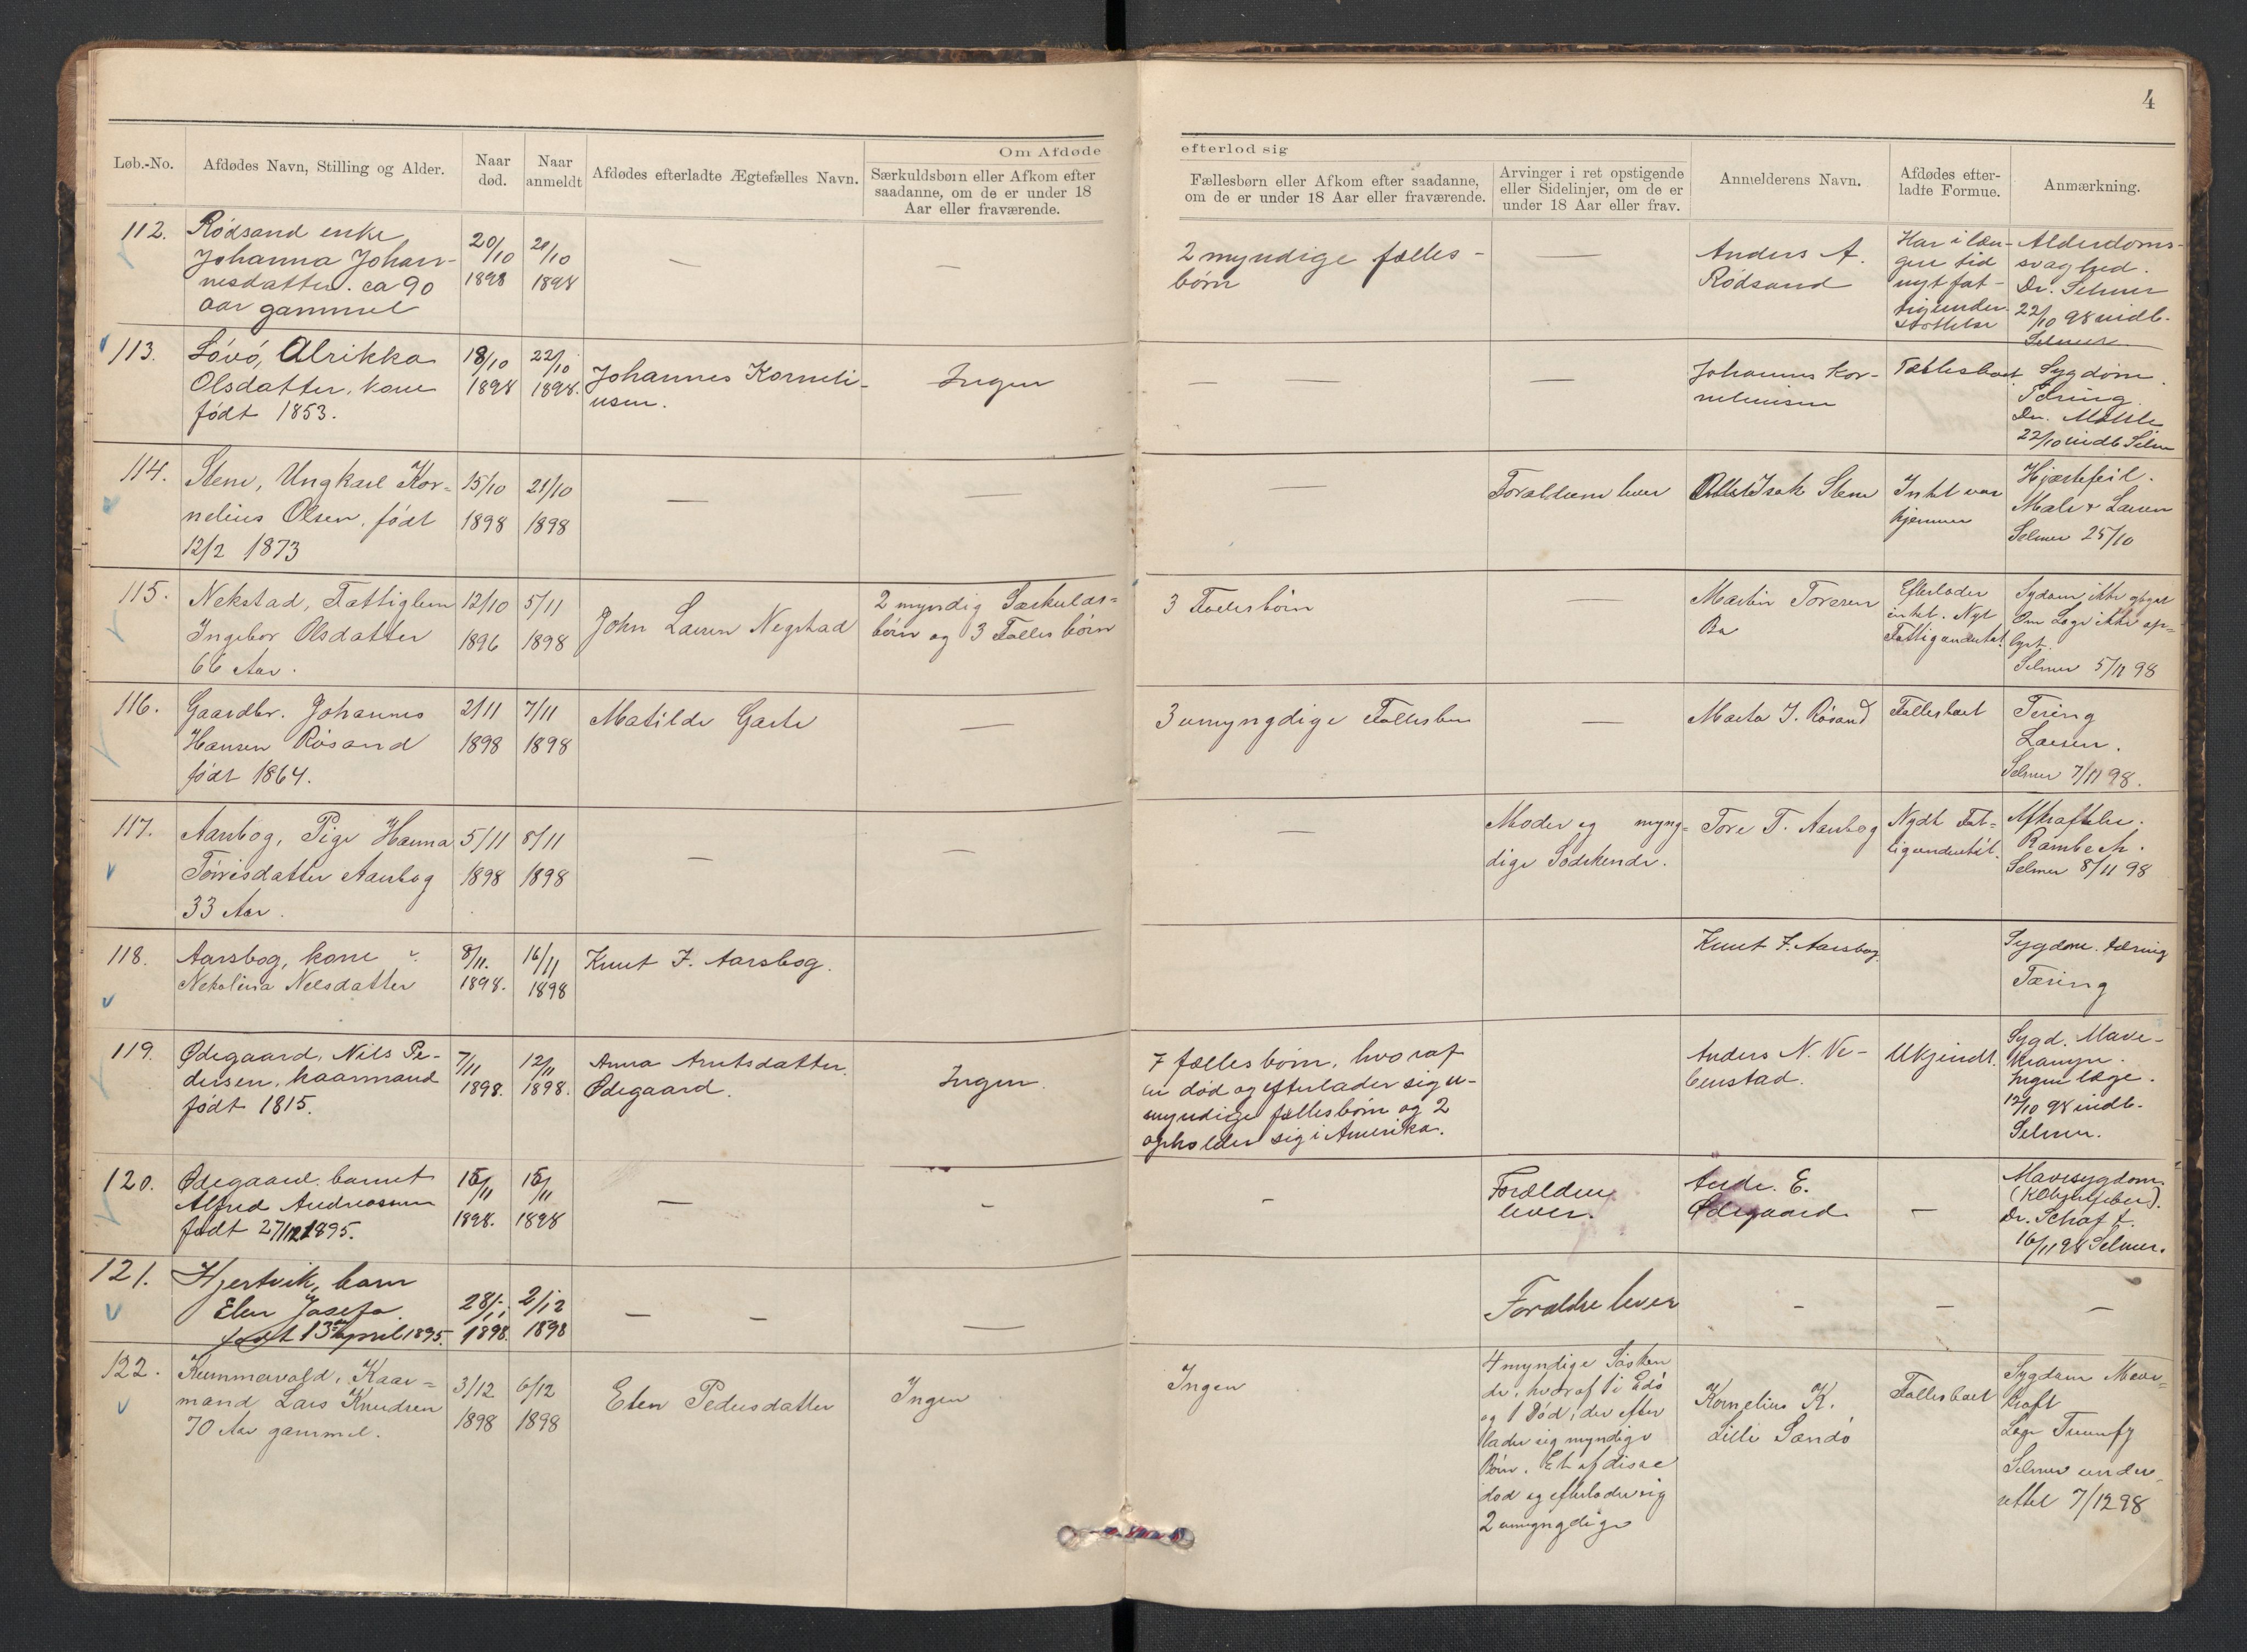 4
Om Afdøde
efterlod sig
Løb.-No.
Afdødes Navn, Stilling og Alder.
Naar
død.
Naar
anmeldt
Afdødes efterladte Ægtefælles Navn.
Særkuldsbørn eller Afkom efter
saadanne, om de er under 18
Aar eller fraværende.
Fællesbørn eller Afkom efter saadanne,
om de er under 18 Aar eller fraværende.
Arvinger i ret opstigende
eller Sidelinjer, om de er
under 18 Aar eller frav.
Anmelderens Navn.
Afdødes efter-
ladte Formue.
Anmærkning.
112.
Rödsand enke
Johanna Johan-
nesdatter. ca 90
aar gammel
20/10
1898
21/10
1898
—
—
2 myndige fælles-
börn
—
Anders A.
Rödsand
Har i læn-
gere tid
nyt fat-
tigunder-
støttelse
Alderdoms-
svaghed.
Dr. Selmer
22/10 98 indb.
Selmer
113.
Lövö, Alrikka
Olsdatter, kone
födt 1853.
18/10
1898
22/10
1898.
Johannes Korneli-
usen.
Ingen
— —
—
Johannes Kor-
neliusen
Fællesboet
Sygdom.
Tæring.
Dr.
22/10 indb Selm
114.
Stene, Ungkarl Kor-
nelius Olsen, födt
12/2 1873
15/10
1898
21/10
1898
—
—
—
Forældrene lever
Isak Stene
Intet var
hjemme
Hjertefeil.
Larsen
Selmer 25/10
115.
Nekstad, Fattiglem
Ingebor Olsdatter
66 Aar.
12/10
1896
5/11
1898
John Larsen Negstad
2 myndig Særkulds-
börn og 3 Fælles börn
3 Fællesbörn
—
Martin Toresen
Efterlader
intet. Nyt
Fattigunderstöt.
Sydom ikke opgivet
Om Læge ikke op-
lyst.
Selmer 5/11 98
116.
Gaardbr. Johannes
Hansen Rösand
födt 1864.
2/11
1898
7/11
1898
Matilde Garte
—
3 umyngdige Fællesbørn
—
Marta J. Rösand
Fællesboet
Tæring
Larsen.
Selmer 7/11 98.
117.
Aarsbog, Pige Hanna
Törrisdatter Aarsbog
33 Aar.
5/11
1898
8/11
1898
—
—
—
Moder og myng-
dige Södskende.
Tore T. Aarsbog
Nydt Fat-
tigunderstöt.
Afkræftelse.
Rambech.
Selmer 8/11 98
118.
Aarsbog, kone
Nekolina Nelsdatter
8/11.
1898.
16/11
1898
Knut J. Aarsbog.
Knut J. Aarsbog
Sygdom. tæring
Tæring
119.
Ødegaard, Nils Pe-
dersen, kaarmand
födt 1815.
7/11
1898.
12/11
1898.
Anna Arntsdatter
Ødegaard.
Ingen.
7 fællesbörn, hvoraf
en död og efterlader sig u-
myndige fællesbörn og 2
opholder sig i Amerika.
Anders N. Ve-
benstad.
Ukjendt.
Sygd. Mave-
krampe.
Ingen læge.
12/10 98 indb.
Selmer.
120.
Ødegaard, barnet
Alfred Andreassen
födt 27/12 1895.
15/11
1898.
15/11
1898
—
–
–
Forældre
lever.
Andr. E.
Ødegaard
—
Mavesygdom.
Dr. Schaft.
16/11 98 Selmer.
121.
Hjertvik, barn
Elen Josefa
födt 13de April 1895.
28/11
1898.
2/12
1898
— –
—
Forældre lever
–
–
–
122.
Kummervold, Kaar-
mand Lars Knudsen
70 Aar gammel.
3/12
1898
6/12
1898
Elen Pedersdatter
Ingen
Ingen
4 myndige Sösken
de, hvoraf 1 i Edö
og 1 död, der efter
lader sig myndige
Börn. Et af disse
död og efterlader sig
2 umyngdige
Kornelius K.
Lille Sandö
Fællesboet
Sygdom Mave-
kræft
Læge
Selmer under-
rettet 7/12 98